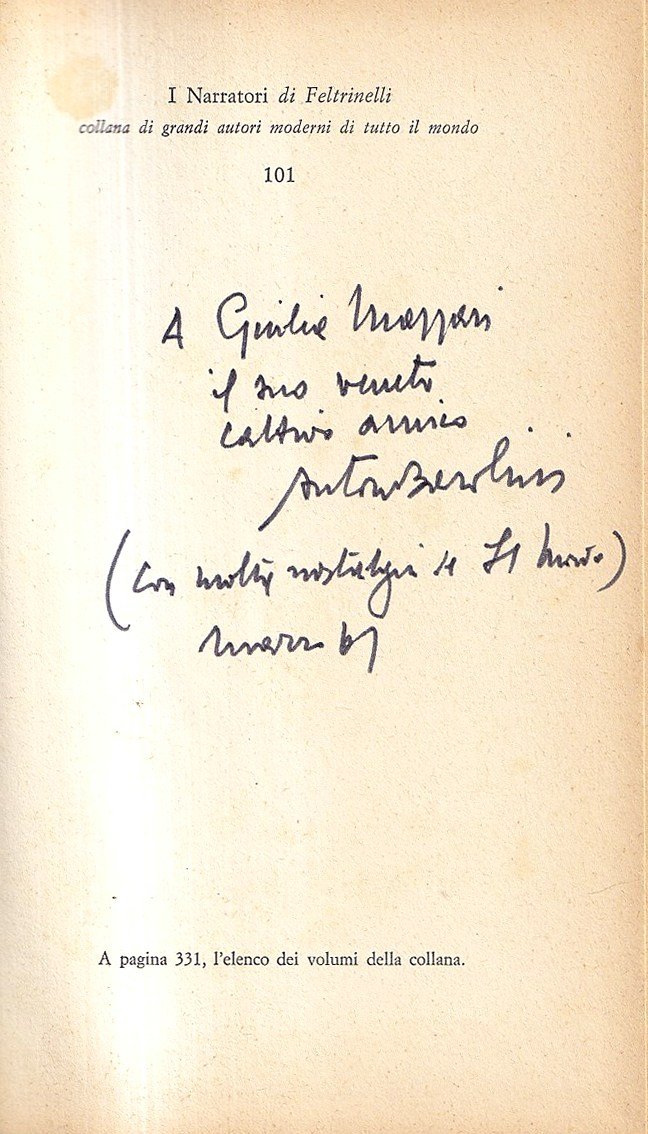 I Narratori di Feltrinelli
collana di grandi autori moderni di tutto il mondo
101
A Giulia Massari
il suo veneto
cattivo amico
Antonio Barolini
(con molta nostalgia
marzo 67
A pagina 331, l'elenco dei volumi della collana.